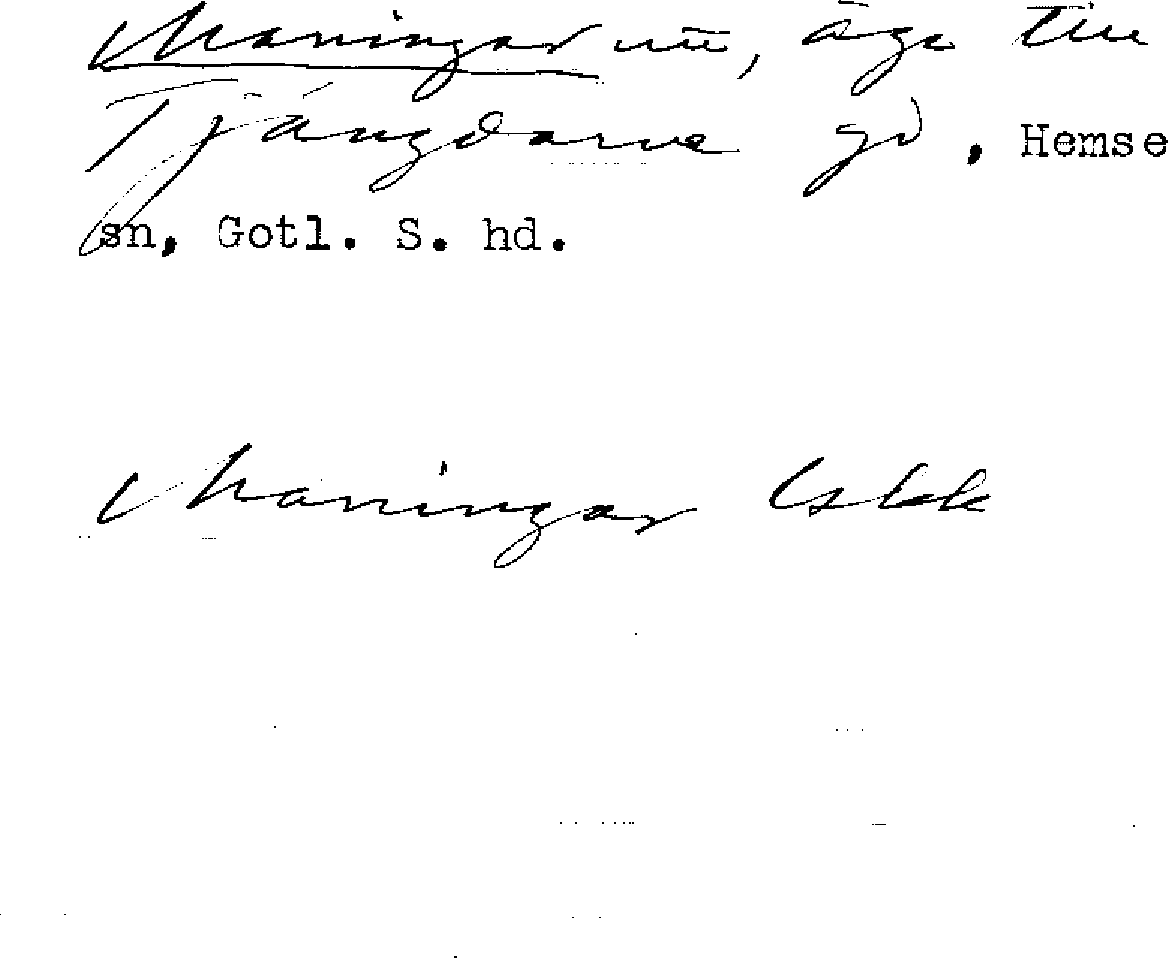 Maningar nu, äga till
Tjängdarve gd, Hemse
sn, Gotl. S. hd.
Maningar